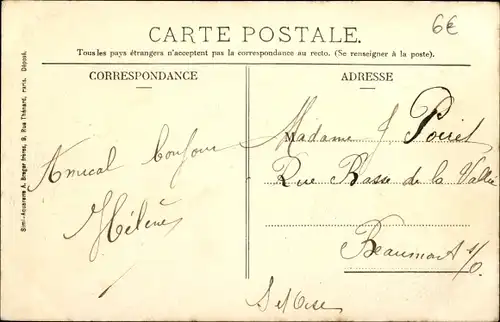 6€
CARTE POSTALE.
Tous les pays étrangers n'acceptent pas la correspondance au recto. (Se renseigner à la poste).
CORRESPONDANCE
ADRESSE
Simi-Aquarelle A. Breger frères, 9, Rue Thénard, Paris. Déposé.
Amical bonjour
Hélène
Madame J Poiret
Rue Basse de la Vallée
Beaumont s/O
S et Oise